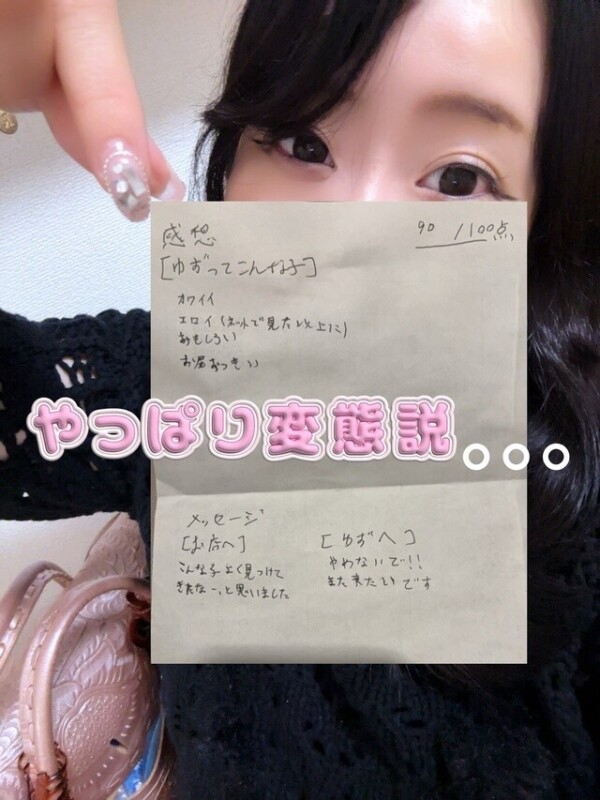 感想
90 /100点
[ゆずってこんな子]
カワイイ
エロイ(ネットで見た以上に)
おもしろい
お酒おっきい
やっぱり変態説。。。
メッセージ
[お店へ]
こんな子よく見つけて
きたなーっと思いました
[ゆずへ]
やわないで!!
また来たいです